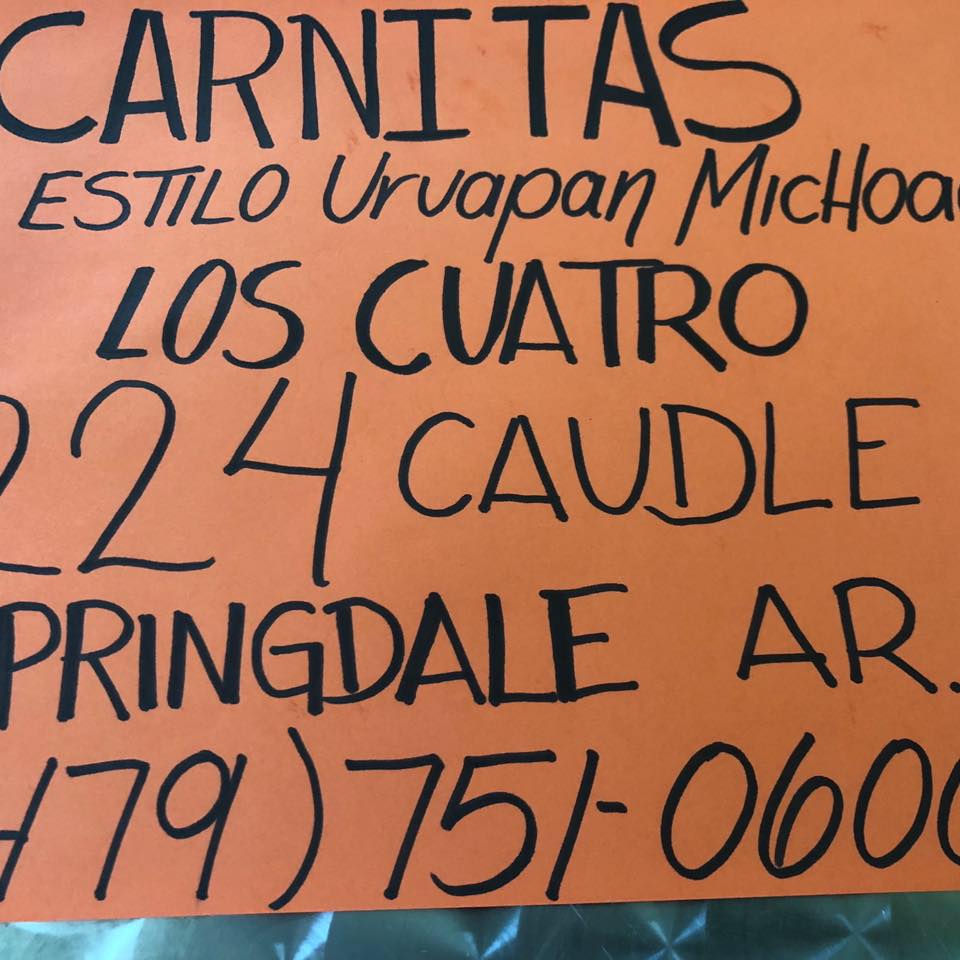 CARNITAS
ESTILO Uruapan MicHoa
LOS CUATRO
224 CAUDLE
PRINGDALE AR.
479) 751-060